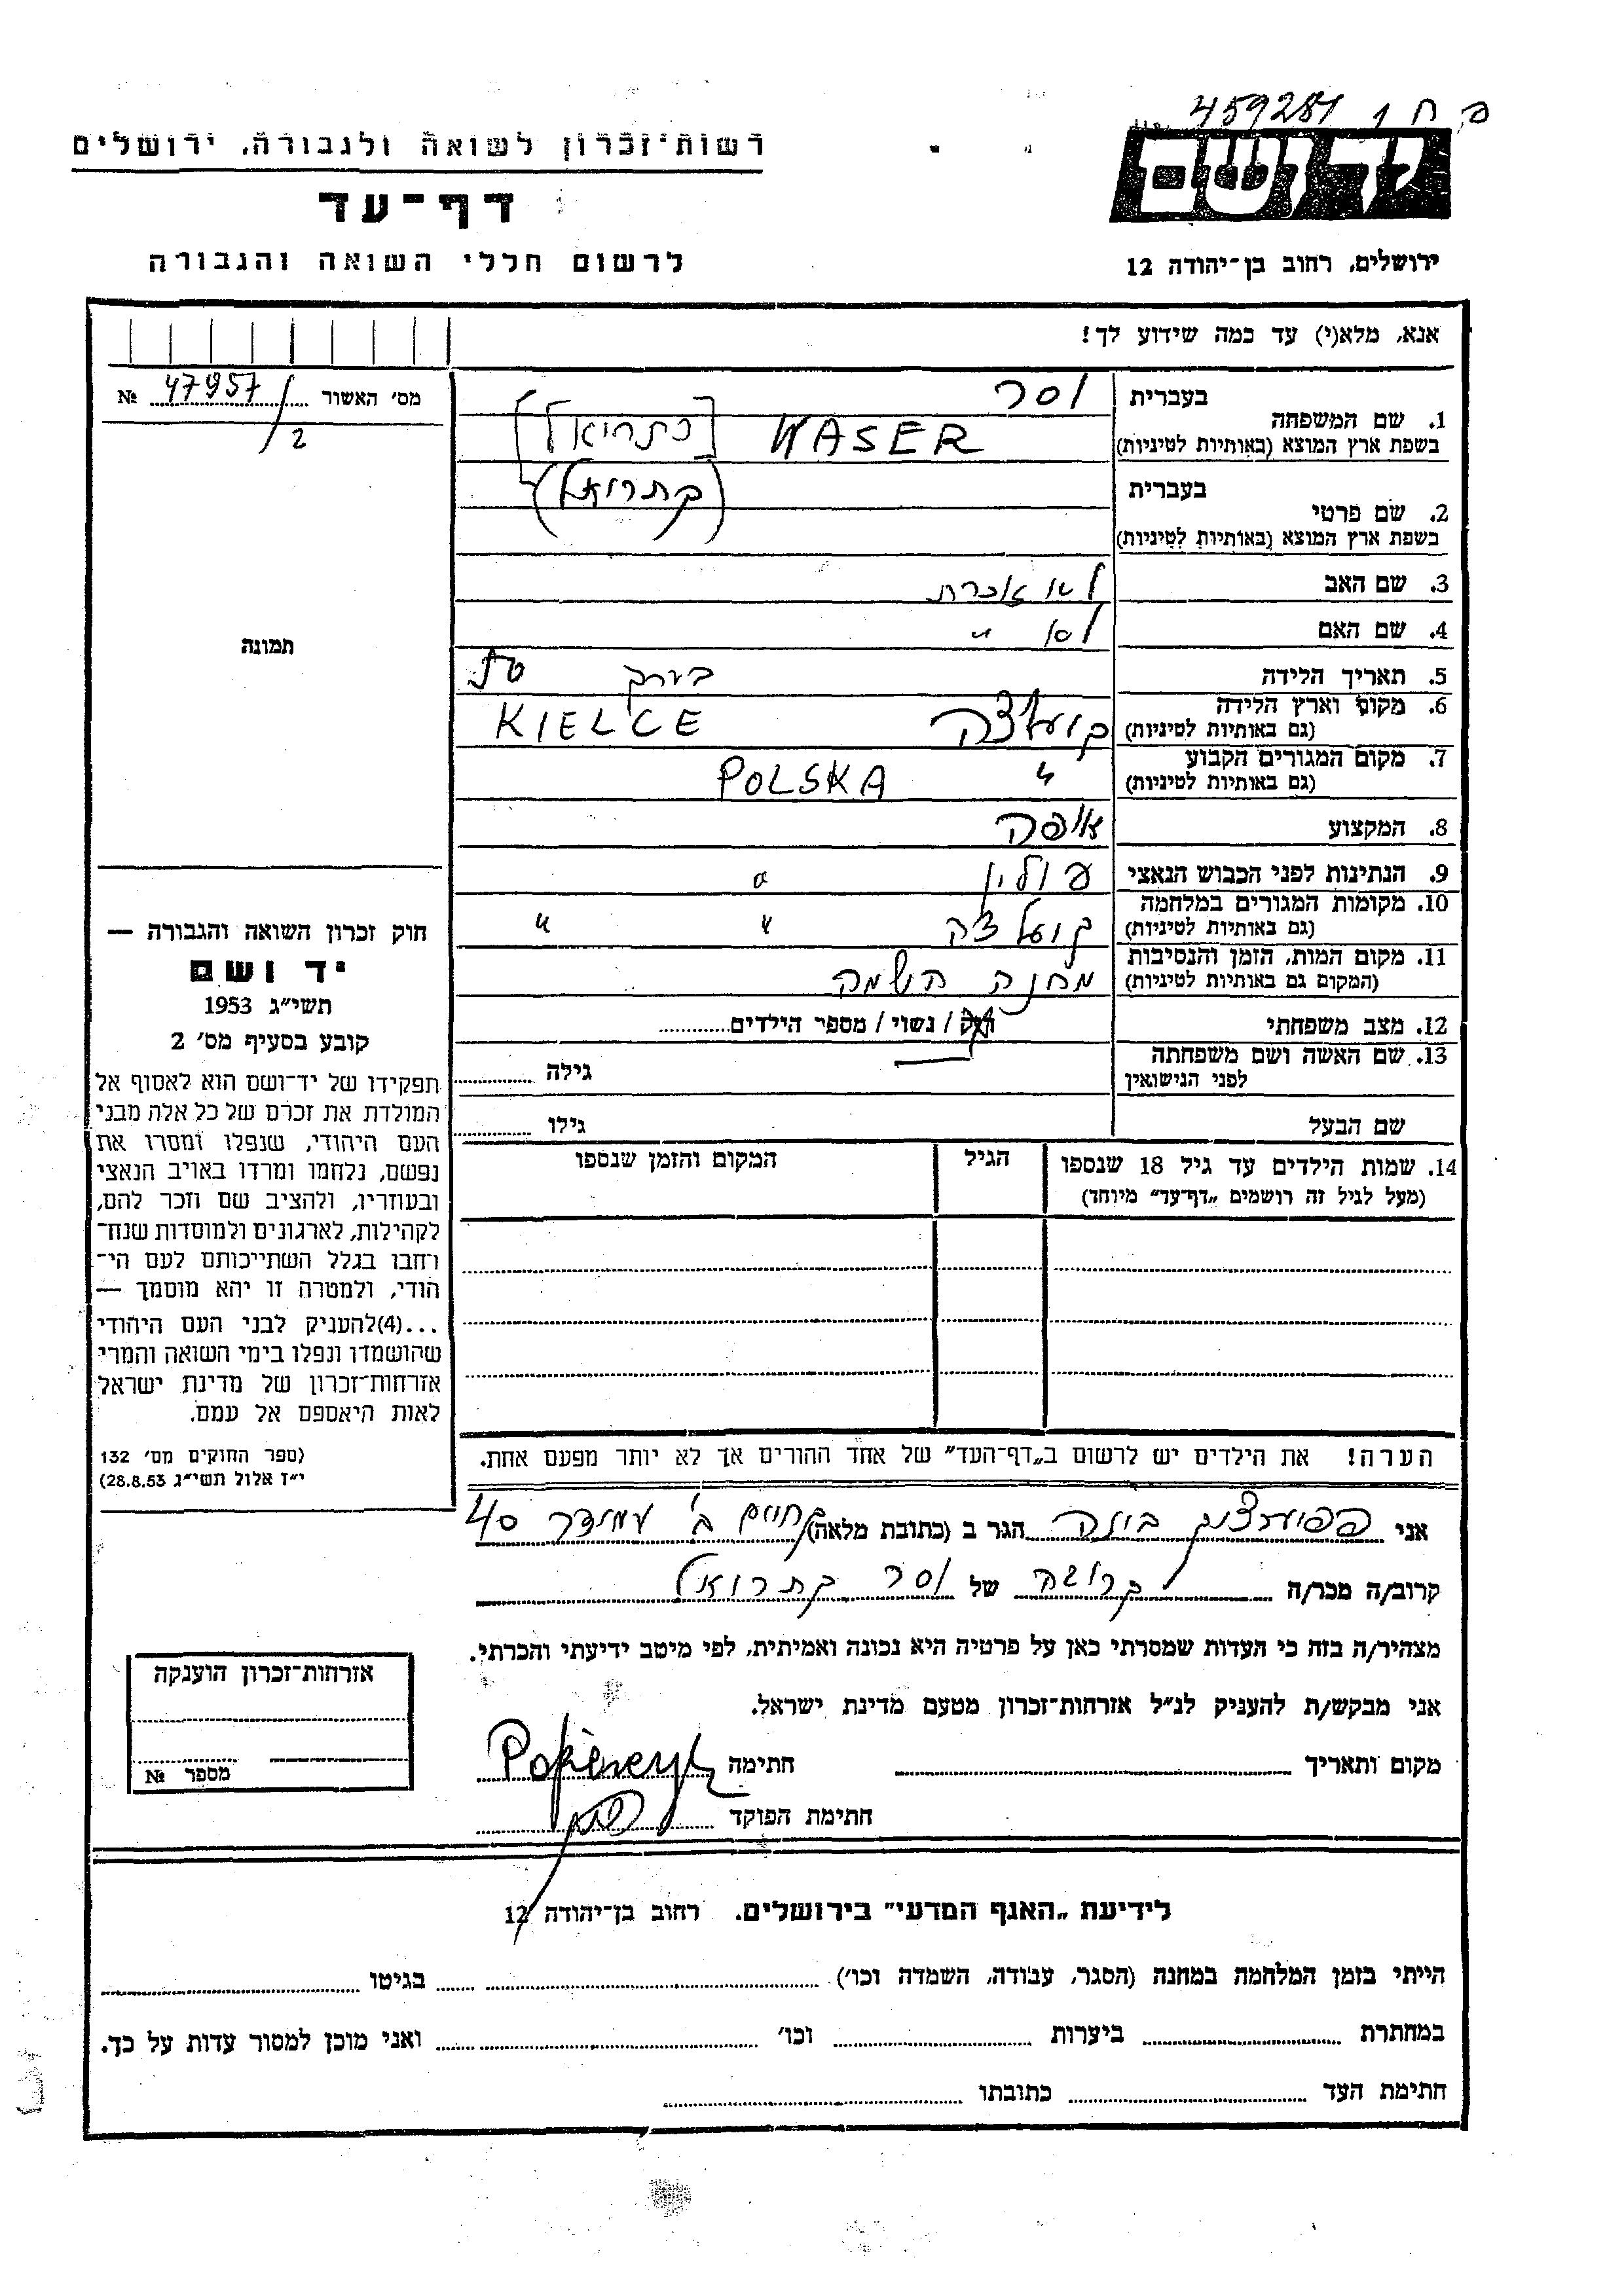 459281
רשות־זכרון לשואה ולגבורה, ירושלים
דף־עד
לרשום חללי השואה והגבורה
יד ושם
ירושלים, רחוב בן־יהודה 12
אנא, מלא(י) עד כמה שידוע לך!
מס׳ האשור 47957/2 №
תמונה
1. שם המשפחה
בעברית וסר
בשפת ארץ המוצא (באותיות לטיניות) WASER
2. שם פרטי
בעברית (קתרואל)
בשפת ארץ המוצא (באותיות לטיניות)
3. שם האב לא זוכרת
4. שם האם לא "
5. תאריך הלידה בערך
6. מקום וארץ הלידה
(גם באותיות לטיניות) KIELCE
7. מקום המגורים הקבוע
(גם באותיות לטיניות) " POLSKA
8. המקצוע אופה
9. הנתינות לפני הכבוש הנאצי פולין "
10. מקומות המגורים במלחמה
(גם באותיות לטיניות) " "
11. מקום המות, הזמן והנסיבות
(המקום גם באותיות לטיניות) מחנה השמדה
12. מצב משפחתי רווק / נשוי / מספר הילדים
13. שם האשה ושם משפחתה
לפני הנישואין
גילה
שם הבעל
גילו
14. שמות הילדים עד גיל 18 שנספו
(מעל לגיל זה רושמים „דף־עד" מיוחד)
הגיל
המקום והזמן שנספו
הערה! את הילדים יש לרשום ב„דף־העד" של אחד ההורים אך לא יותר מפעם אחת.
חוק זכרון השואה והגבורה —
יד ושם
תשי״ג 1953
קובע בסעיף מס׳ 2
תפקידו של יד־ושם הוא לאסוף אל
המולדת את זכרם של כל אלה מבני
העם היהודי, שנפלו ומסרו את
נפשם, נלחמו ומרדו באויב הנאצי
ובעוזריו, ולהציב שם וזכר להם,
לקהילות, לארגונים ולמוסדות שנח־
רחבו בגלל השתייכותם לעם הי־
הודי, ולמטרה זו יהא מוסמך —
...(4)להעניק לבני העם היהודי
שהושמדו ונפלו בימי השואה והמרי
אזרחות־זכרון של מדינת ישראל
לאות היאספם אל עמם.
(ספר החוקים מס׳ 132
י״ז אלול תשי״ג 28.8.53)
אני הגר ב (כתובת מלאה) 40
קרוב/ה מכר/ה קרובה של וסר קתרואל
מצהיר/ה בזה כי העדות שמסרתי כאן על פרטיה היא נכונה ואמיתית, לפי מיטב ידיעתי והכרתי.
אני מבקש/ת להעניק לנ״ל אזרחות־זכרון מטעם מדינת ישראל.
מקום ותאריך חתימה
חתימת הפוקד
אזרחות־זכרון הוענקה
מספר №
לידיעת „האגף המדעי" בירושלים. רחוב בן־יהודה 12
הייתי בזמן המלחמה במחנה (הסגר, עבודה, השמדה וכו׳) בגיטו
במחתרת ביערות וכו׳ ואני מוכן למסור עדות על כך.
חתימת העד כתובתו